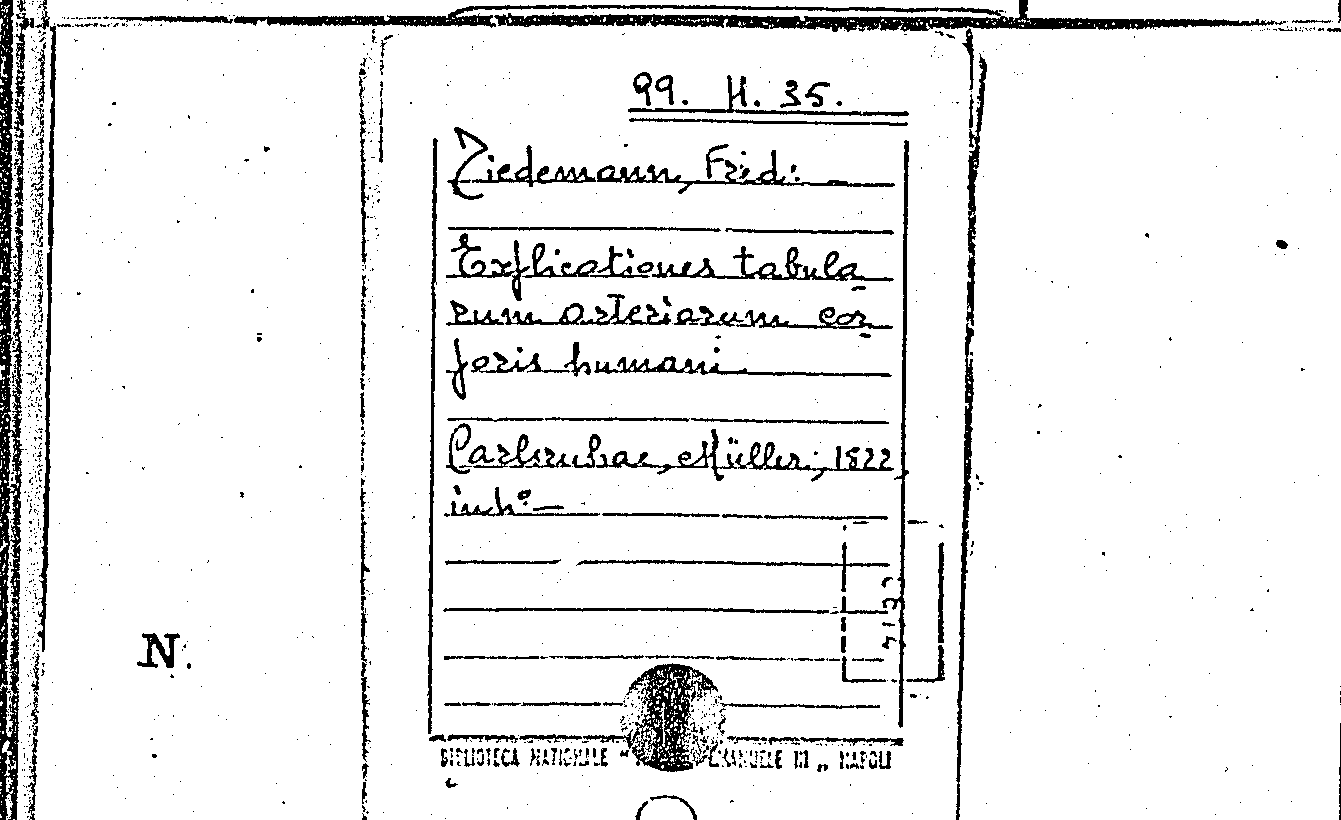 99. H. 35.
Tiedemann, Frid:
Explicationes tabula
rum arteriarum cor
poris humani
Carlsruhae, Müller, 1822,
in 4º.—
N.
BIBLIOTECA NAZIONALE " EMANUELE III „ NAPOLI